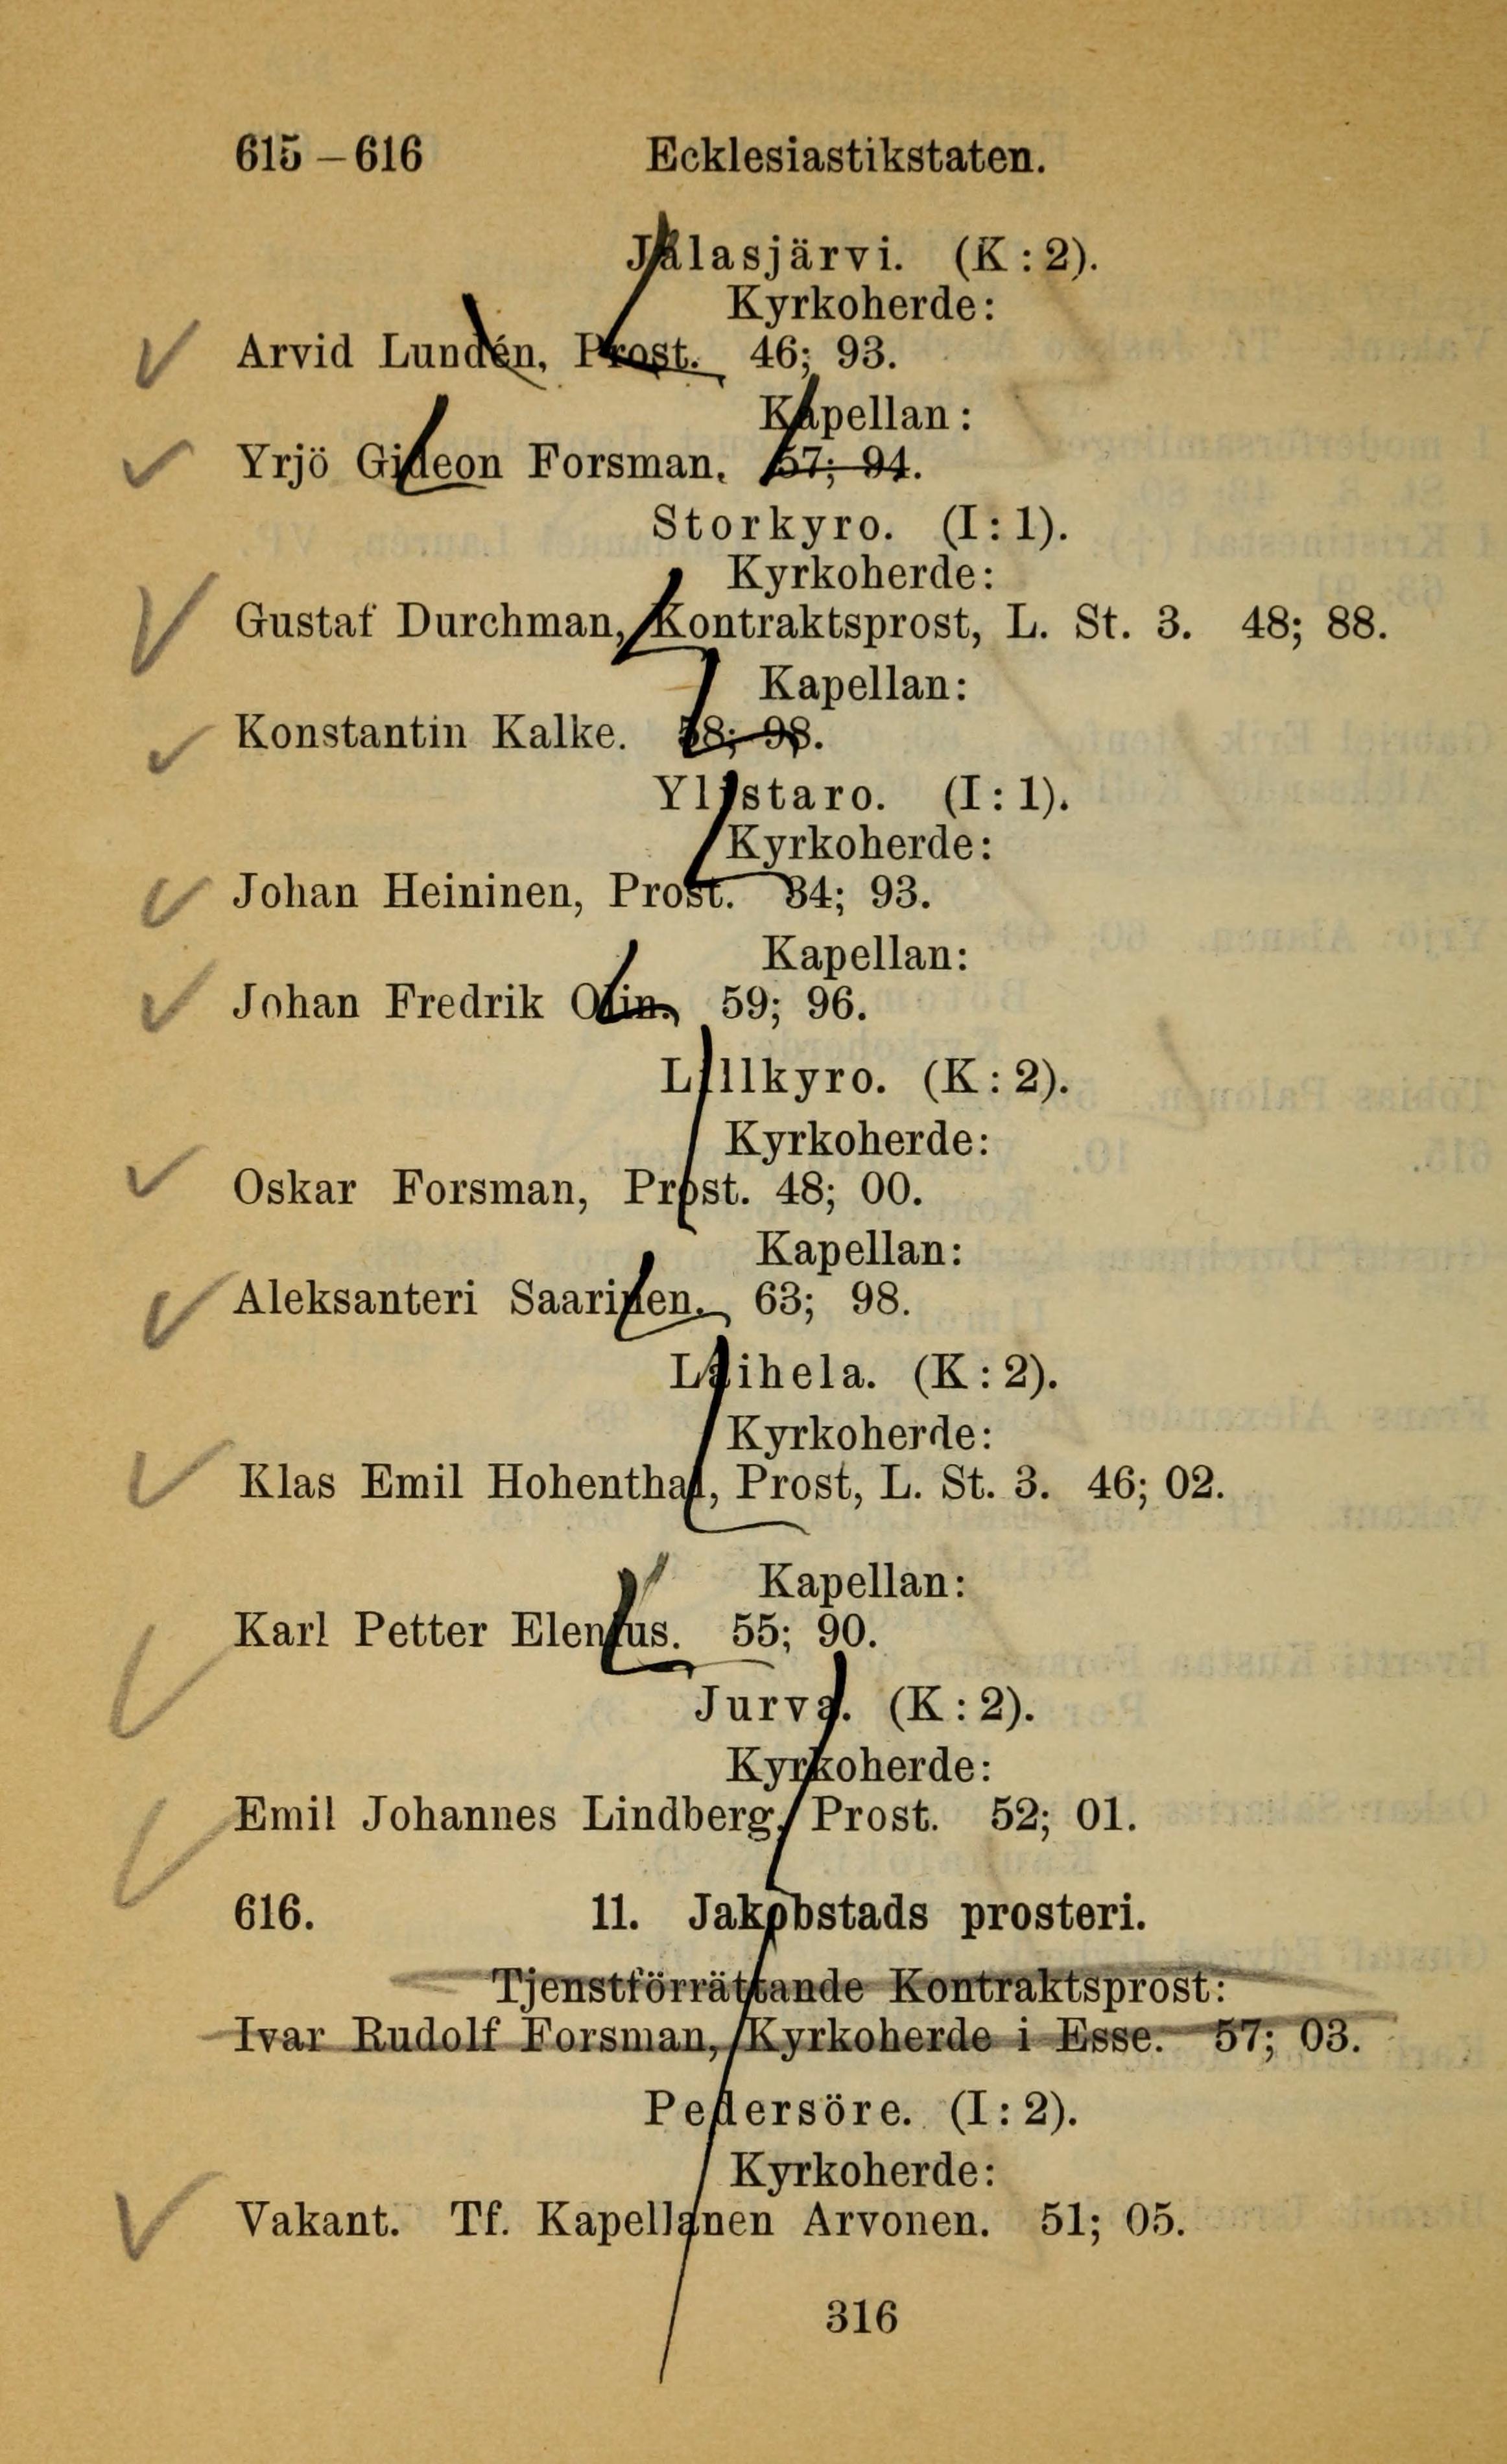 615 – 616 Ecklesiastikstaten.
Jalasjärvi. (K: 2).
Kyrkoherde:
Arvid Lundén, Prost. 46; 93.
Kapellan:
Yrjö Gideon Forsman. 57; 94.
Storkyro. (I: 1).
Kyrkoherde:
Gustaf Durchman, Kontraktsprost, L. St. 3. 48; 88.
Kapellan:
Konstantin Kalke. 58; 98.
Ylistaro. (I: 1).
Kyrkoherde:
Johan Heininen, Prost. 34; 93.
Kapellan:
Johan Fredrik Olin. 59; 96.
Lillkyro. (K: 2).
Kyrkoherde:
Oskar Forsman, Prost. 48; 00.
Kapellan:
Aleksanteri Saarinen. 63; 98.
Laihela. (K: 2).
Kyrkoherde:
Klas Emil Hohenthal, Prost, L. St. 3. 46; 02.
Kapellan:
Karl Petter Elenius. 55; 90.
Jurva. (K: 2).
Kyrkoherde:
Emil Johannes Lindberg, Prost. 52; 01.
616. 11. Jakobstads prosteri.
Tjenstförrättande Kontraktsprost:
Ivar Rudolf Forsman, Kyrkoherde i Esse. 57; 03.
Pedersöre. (I: 2).
Kyrkoherde:
Vakant. Tf. Kapellanen Arvonen. 51; 05.
316